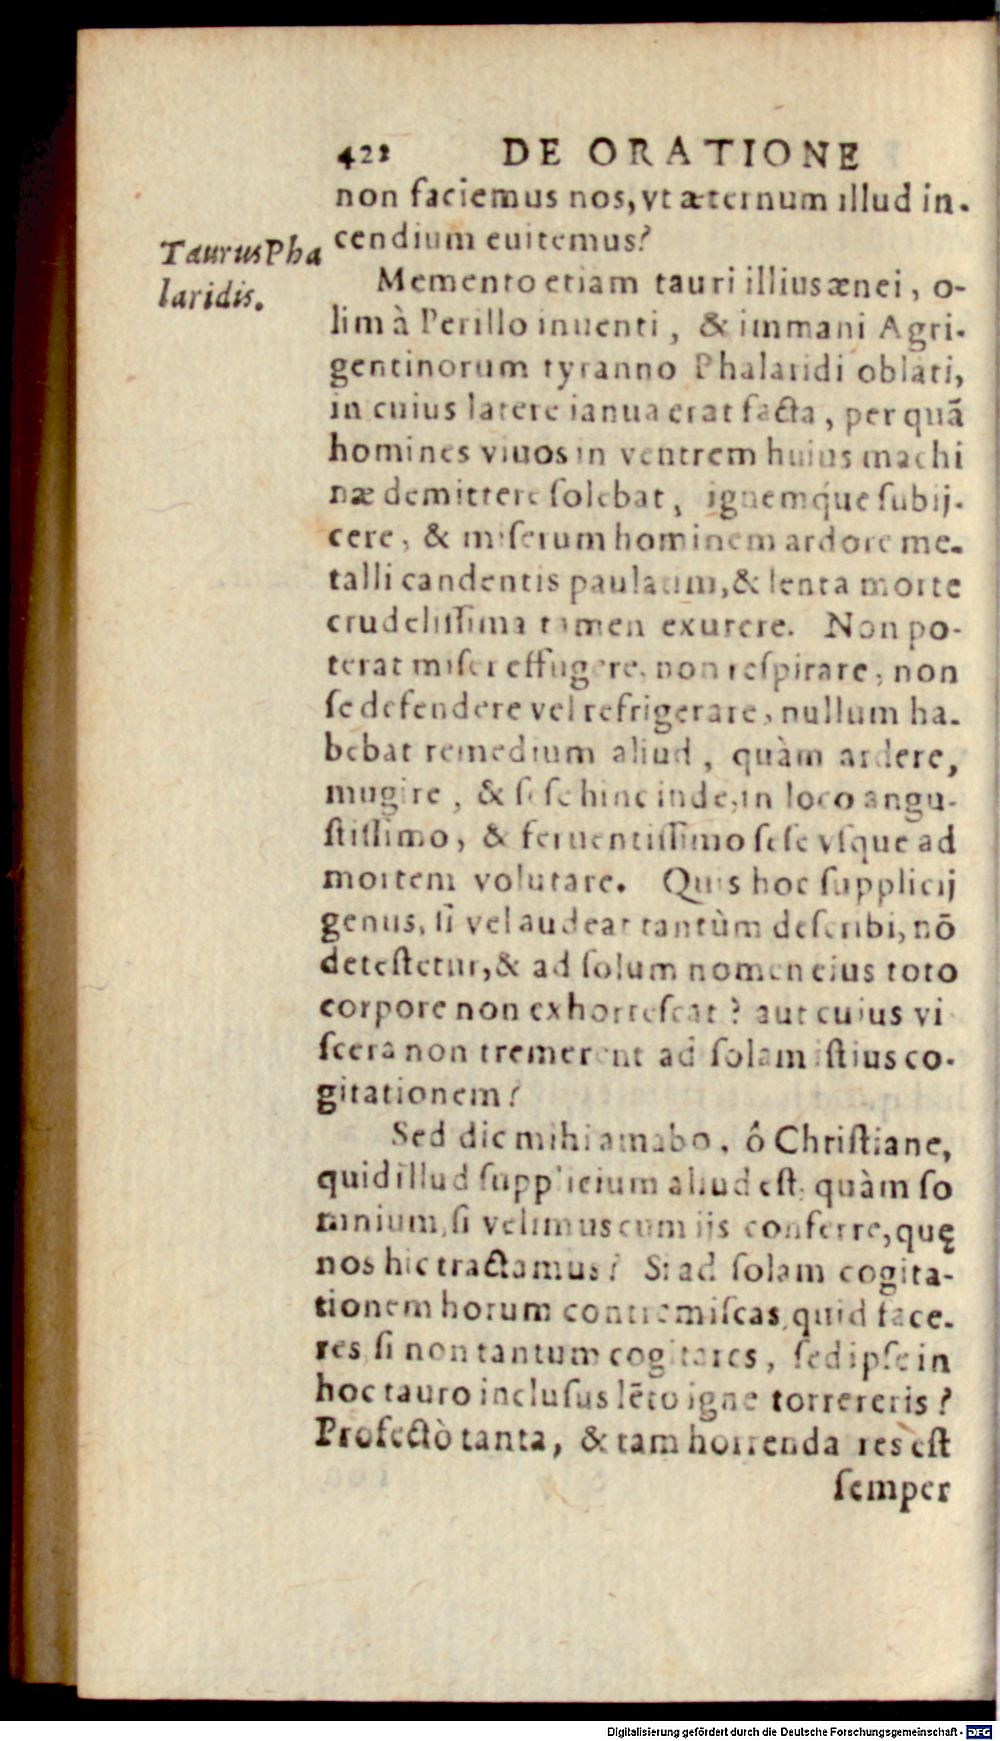 422 DE ORATIONE
non faciemus nos, vt æternum illud in-
cendium euitemus?
Taurus Pha
laridis.
Memento etiam tauri illius ænei, o-
lim à Perillo inuenti, & immani Agri-
gentinorum tyranno Phalaridi oblati,
in cuius latere ianua erat facta, per quā
homines viuos in ventrem huius machi
næ demittere ſolebat, ignemq́ue ſubij-
cere, & miſerum hominem ardore me-
talli candentis paulatim, & lenta morte
crudeliſſima tamen exurere. Non po-
terat miſer effugere, non reſpirare, non
ſe defendere vel refrigerare, nullum ha-
bebat remedium aliud, quàm ardere,
mugire, & ſeſe hinc inde, in loco angu-
ſtiſſimo, & feruentiſſimo ſeſe vſque ad
mortem volutare. Quis hoc ſupplicij
genus, ſi vel audeat tantùm deſcribi, nō
deteſtetur, & ad ſolum nomen eius toto
corpore non exhorreſcat? aut cuius vi
ſcera non tremerent ad ſolam iſtius co-
gitationem?
Sed dic mihi amabo, ô Chriſtiane,
quid illud ſupplicium aliud eſt, quàm ſo
mnium, ſi velimus cum iis conferre, quę
nos hic tractamus? Si ad ſolam cogita-
tionem horum contremiſcas, quid face-
res, ſi non tantum cogitares, ſed ipſe in
hoc tauro incluſus lēto igne torrereris?
Profectò tanta, & tam horrenda res eſt
ſemper
Digitalisierung gefördert durch die Deutsche Forschungsgemeinschaft - DFG